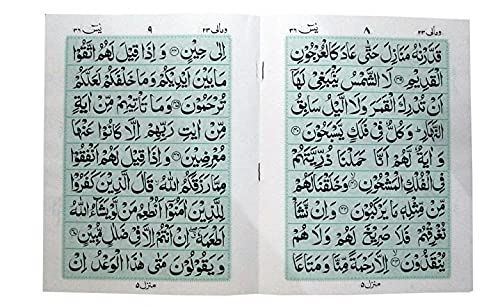 ومالی ٢٣ ٨ یٰسٓ ٣٦
قَدَّرْنٰهُ مَنَازِلَ حَتّٰى عَادَ كَالْعُرْجُوْنِ
الْقَدِيْمِ ﴿٣٩﴾ لَا الشَّمْسُ يَنْۢبَغِيْ لَهَاۤ
اَنْ تُدْرِكَ الْقَمَرَ وَلَا الَّيْلُ سَابِقُ
النَّهَارِ ؕ وَكُلٌّ فِيْ فَلَكٍ يَّسْبَحُوْنَ ﴿٤٠﴾
وَاٰيَةٌ لَّهُمْ اَنَّا حَمَلْنَا ذُرِّيَّتَهُمْ
فِي الْفُلْكِ الْمَشْحُوْنِ ﴿٤١﴾ وَخَلَقْنَا لَهُمْ
مِّنْ مِّثْلِهٖ مَا يَرْكَبُوْنَ ﴿٤٢﴾ وَاِنْ نَّشَاْ
نُغْرِقْهُمْ فَلَا صَرِيْخَ لَهُمْ وَلَا هُمْ
يُنْقَذُوْنَ ﴿٤٣﴾ اِلَّا رَحْمَةً مِّنَّا وَمَتَاعًا
منزل ٥
ومالی ٢٣ ٩ یٰسٓ ٣٦
اِلٰى حِيْنٍ ﴿٤٤﴾ وَاِذَا قِيْلَ لَهُمُ اتَّقُوْا
مَا بَيْنَ اَيْدِيْكُمْ وَمَا خَلْفَكُمْ لَعَلَّكُمْ
تُرْحَمُوْنَ ﴿٤٥﴾ وَمَا تَاْتِيْهِمْ مِّنْ اٰيَةٍ
مِّنْ اٰيٰتِ رَبِّهِمْ اِلَّا كَانُوْا عَنْهَا
مُعْرِضِيْنَ ﴿٤٦﴾ وَاِذَا قِيْلَ لَهُمْ اَنْفِقُوْا
مِمَّا رَزَقَكُمُ اللّٰهُ ۙ قَالَ الَّذِيْنَ كَفَرُوْا
لِلَّذِيْنَ اٰمَنُوْۤا اَنُطْعِمُ مَنْ لَّوْ يَشَآءُ اللّٰهُ
اَطْعَمَهٗۤ ۖ اِنْ اَنْتُمْ اِلَّا فِيْ ضَلٰلٍ مُّبِيْنٍ ﴿٤٧﴾
وَيَقُوْلُوْنَ مَتٰى هٰذَا الْوَعْدُ اِنْ
منزل ٥